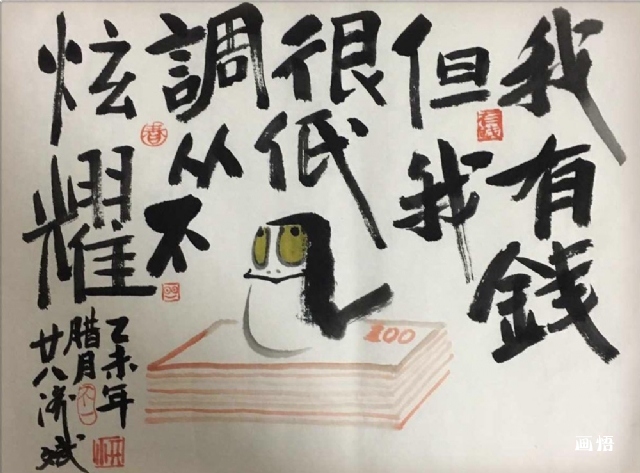 我有錢
但我
很低
調从不
炫耀
乙未年
腊月
廿八
100
画悟